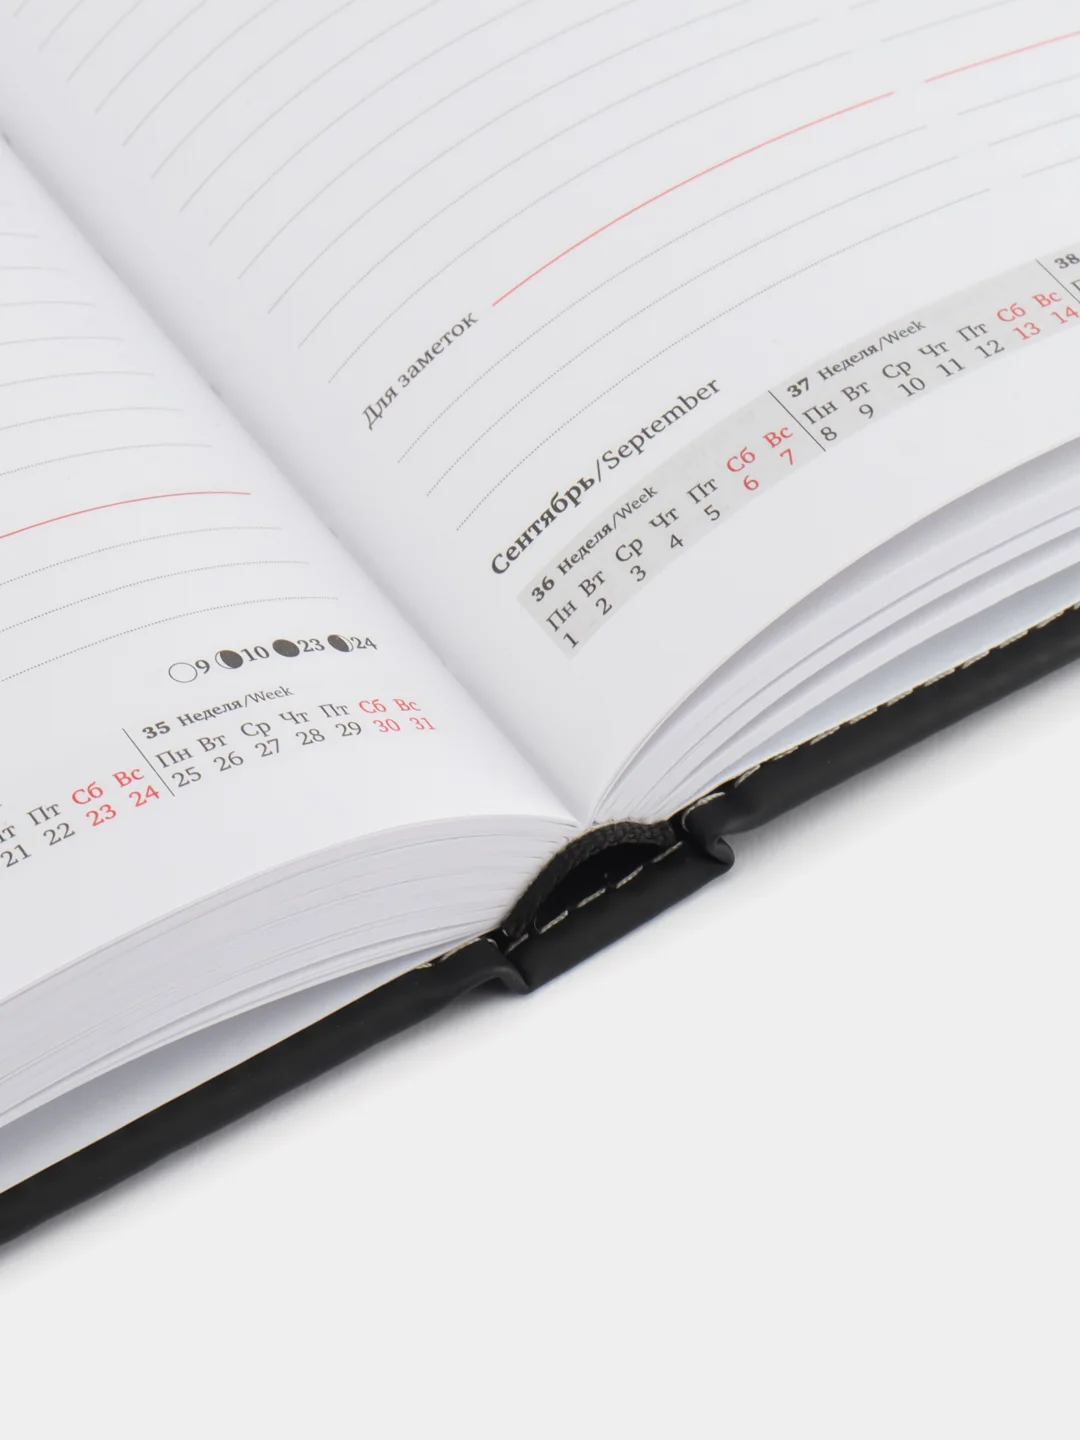 9 10 23 24
35 Неделя/Week
Пт Сб Вс Пн Вт Ср Чт Пт Сб Вс
21 22 23 24 25 26 27 28 29 30 31
Для заметок
Сентябрь/September
36 Неделя/Week 37 Неделя/Week 38
Пн Вт Ср Чт Пт Сб Вс Пн Вт Ср Чт Пт Сб Вс
1 2 3 4 5 6 7 8 9 10 11 12 13 14